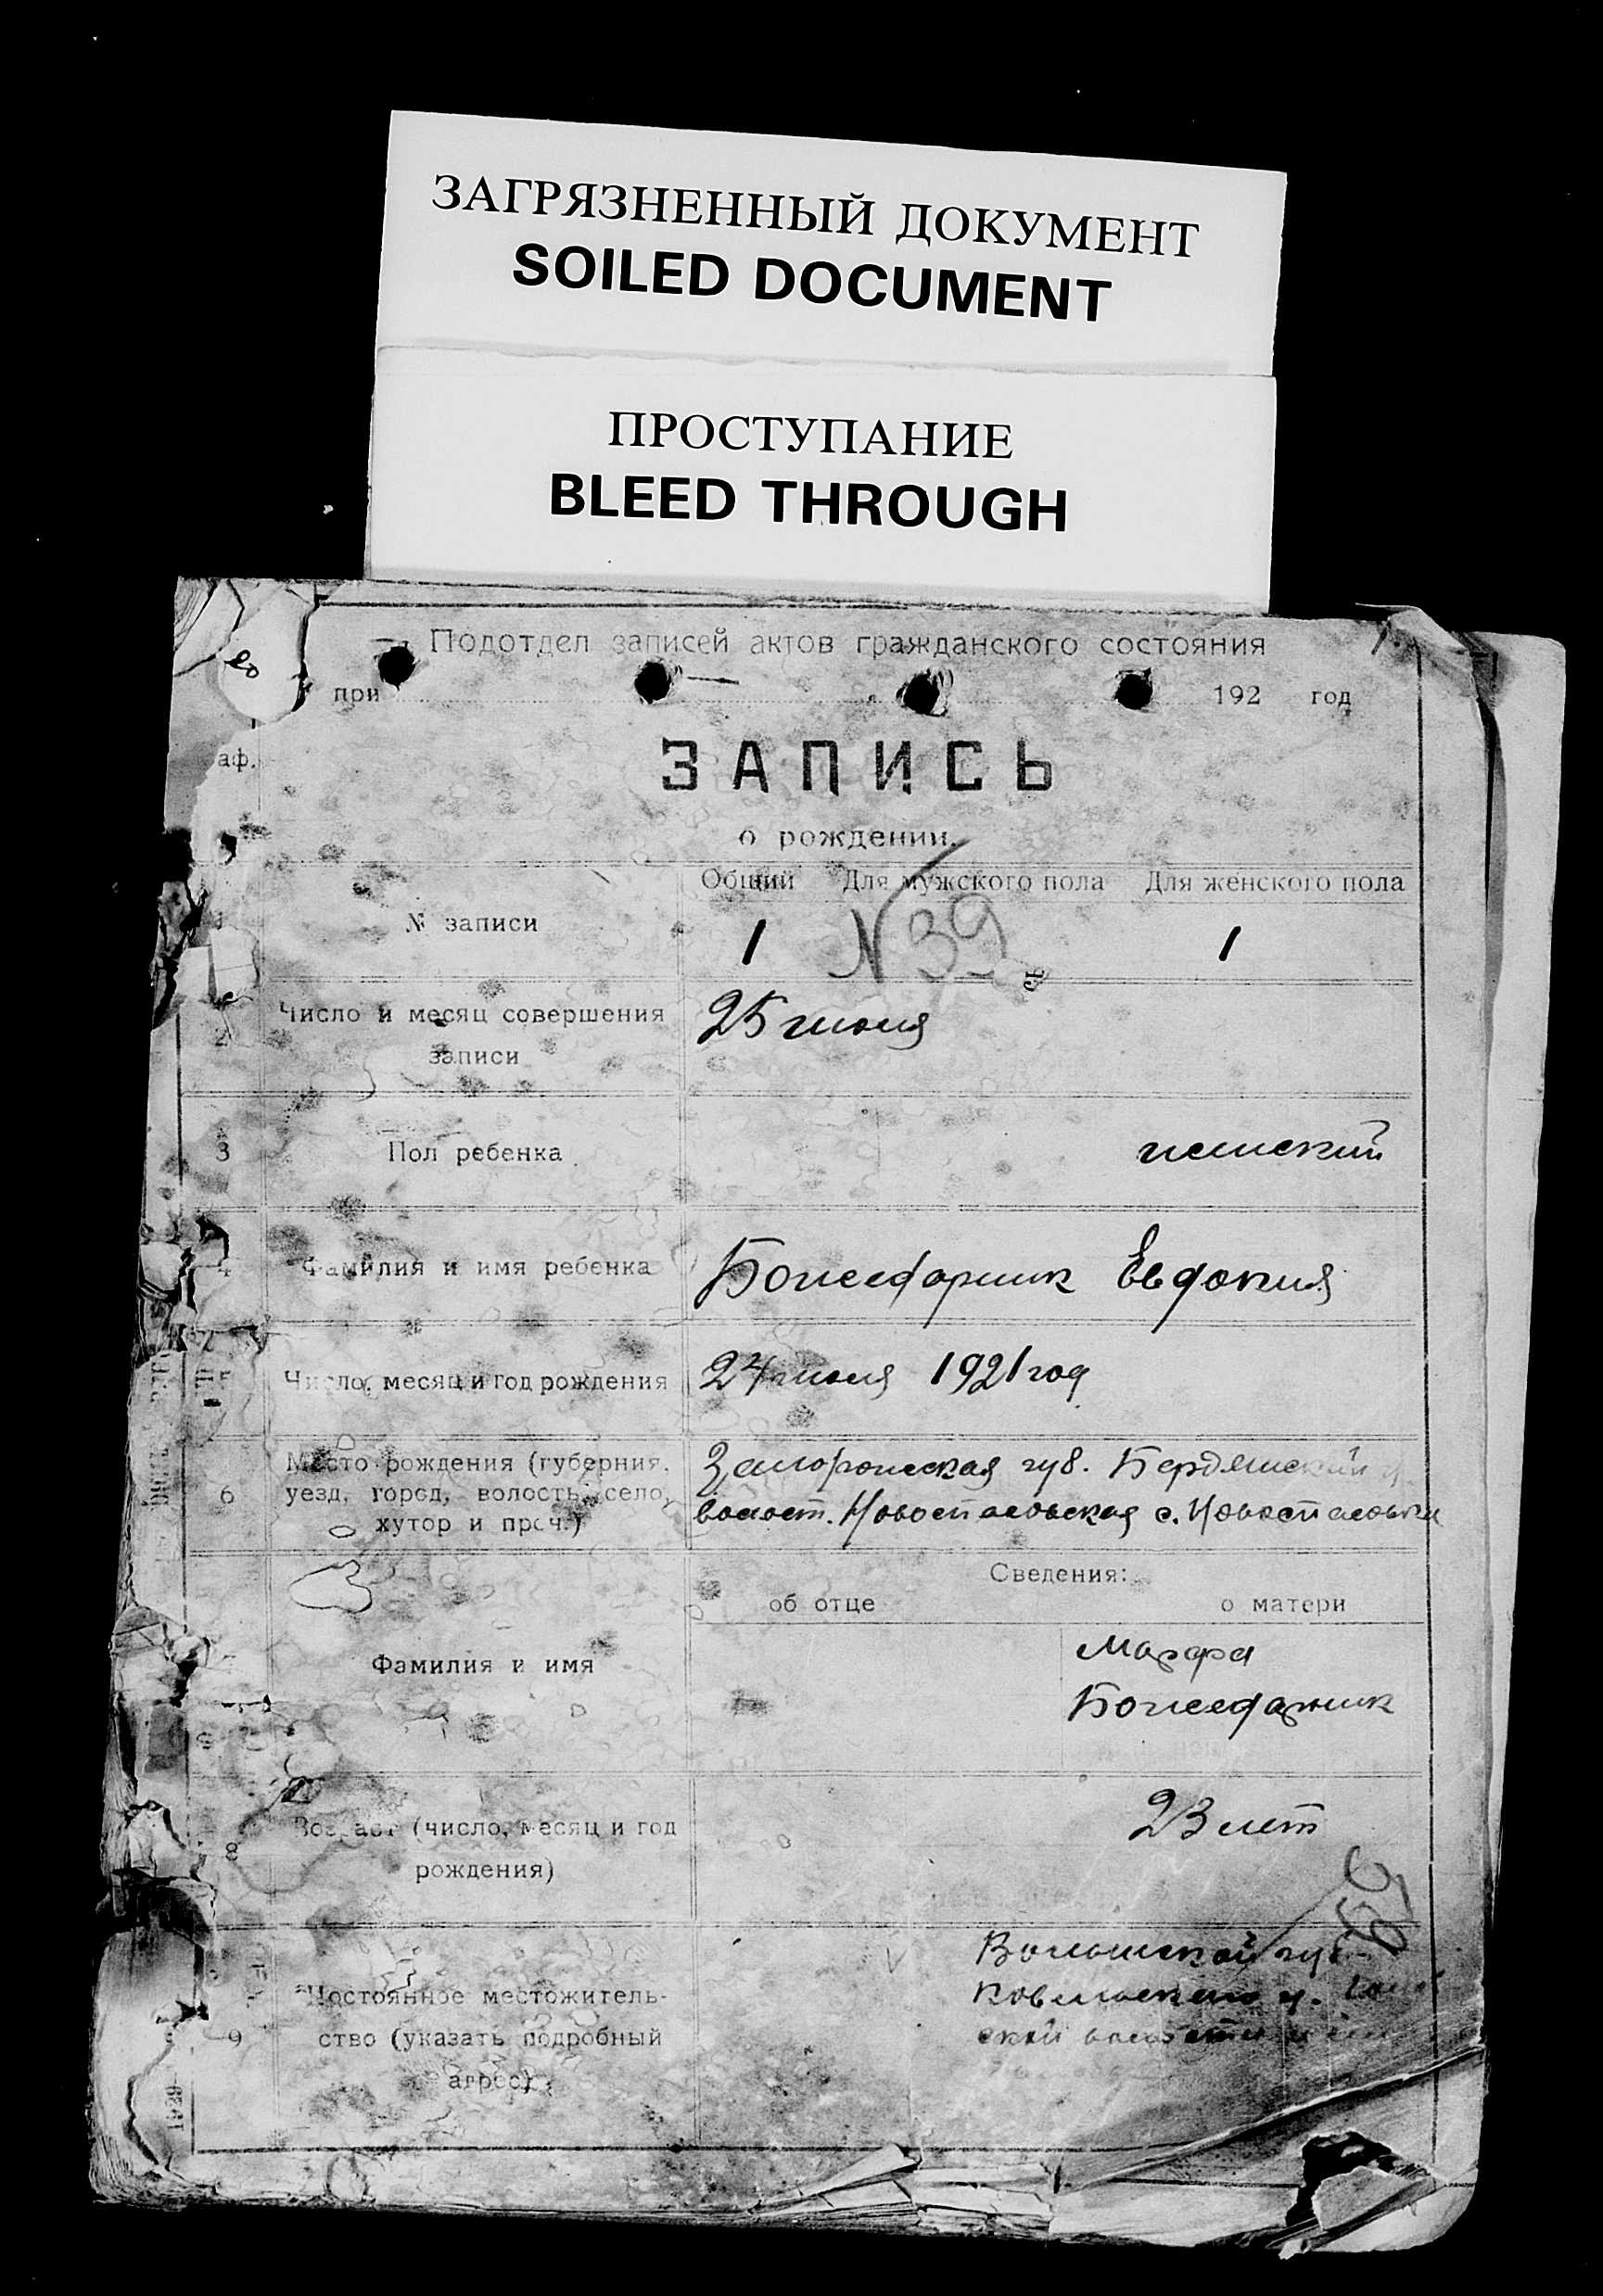 ЗАГРЯЗНЕННЫЙ ДОКУМЕНТ
SOILED DOCUMENT
ПРОСТУПАНИЕ
BLEED THROUGH
Подотдел записей актов гражданского состояния
при 192 год
аф.
ЗАПИСЬ
о рождении.
Общий Для мужского пола Для женского пола
1 № записи 1 N 39 1
2 Число и месяц совершения 25 июня
записи
3 Пол ребенка женский
4 Фамилия и имя ребенка Божедарник Евдокия
5 Число, месяц и год рождения 24 июня 1921 год
Место рождения (губерния, Запорожская губ. Бердянский у.
6 уезд, город, волость, село, волост. Новоспасовская с. Новоспасовка
хутор и проч.)
Сведения:
об отце о матери
Фамилия и имя Марфа
Божедарник
8 Возраст (число, месяц и год 23 лет
рождения)
Волынской губ.
Постоянное местожитель- Ковельского у.
9 ство (указать подробный ской волости
адрес)
1929